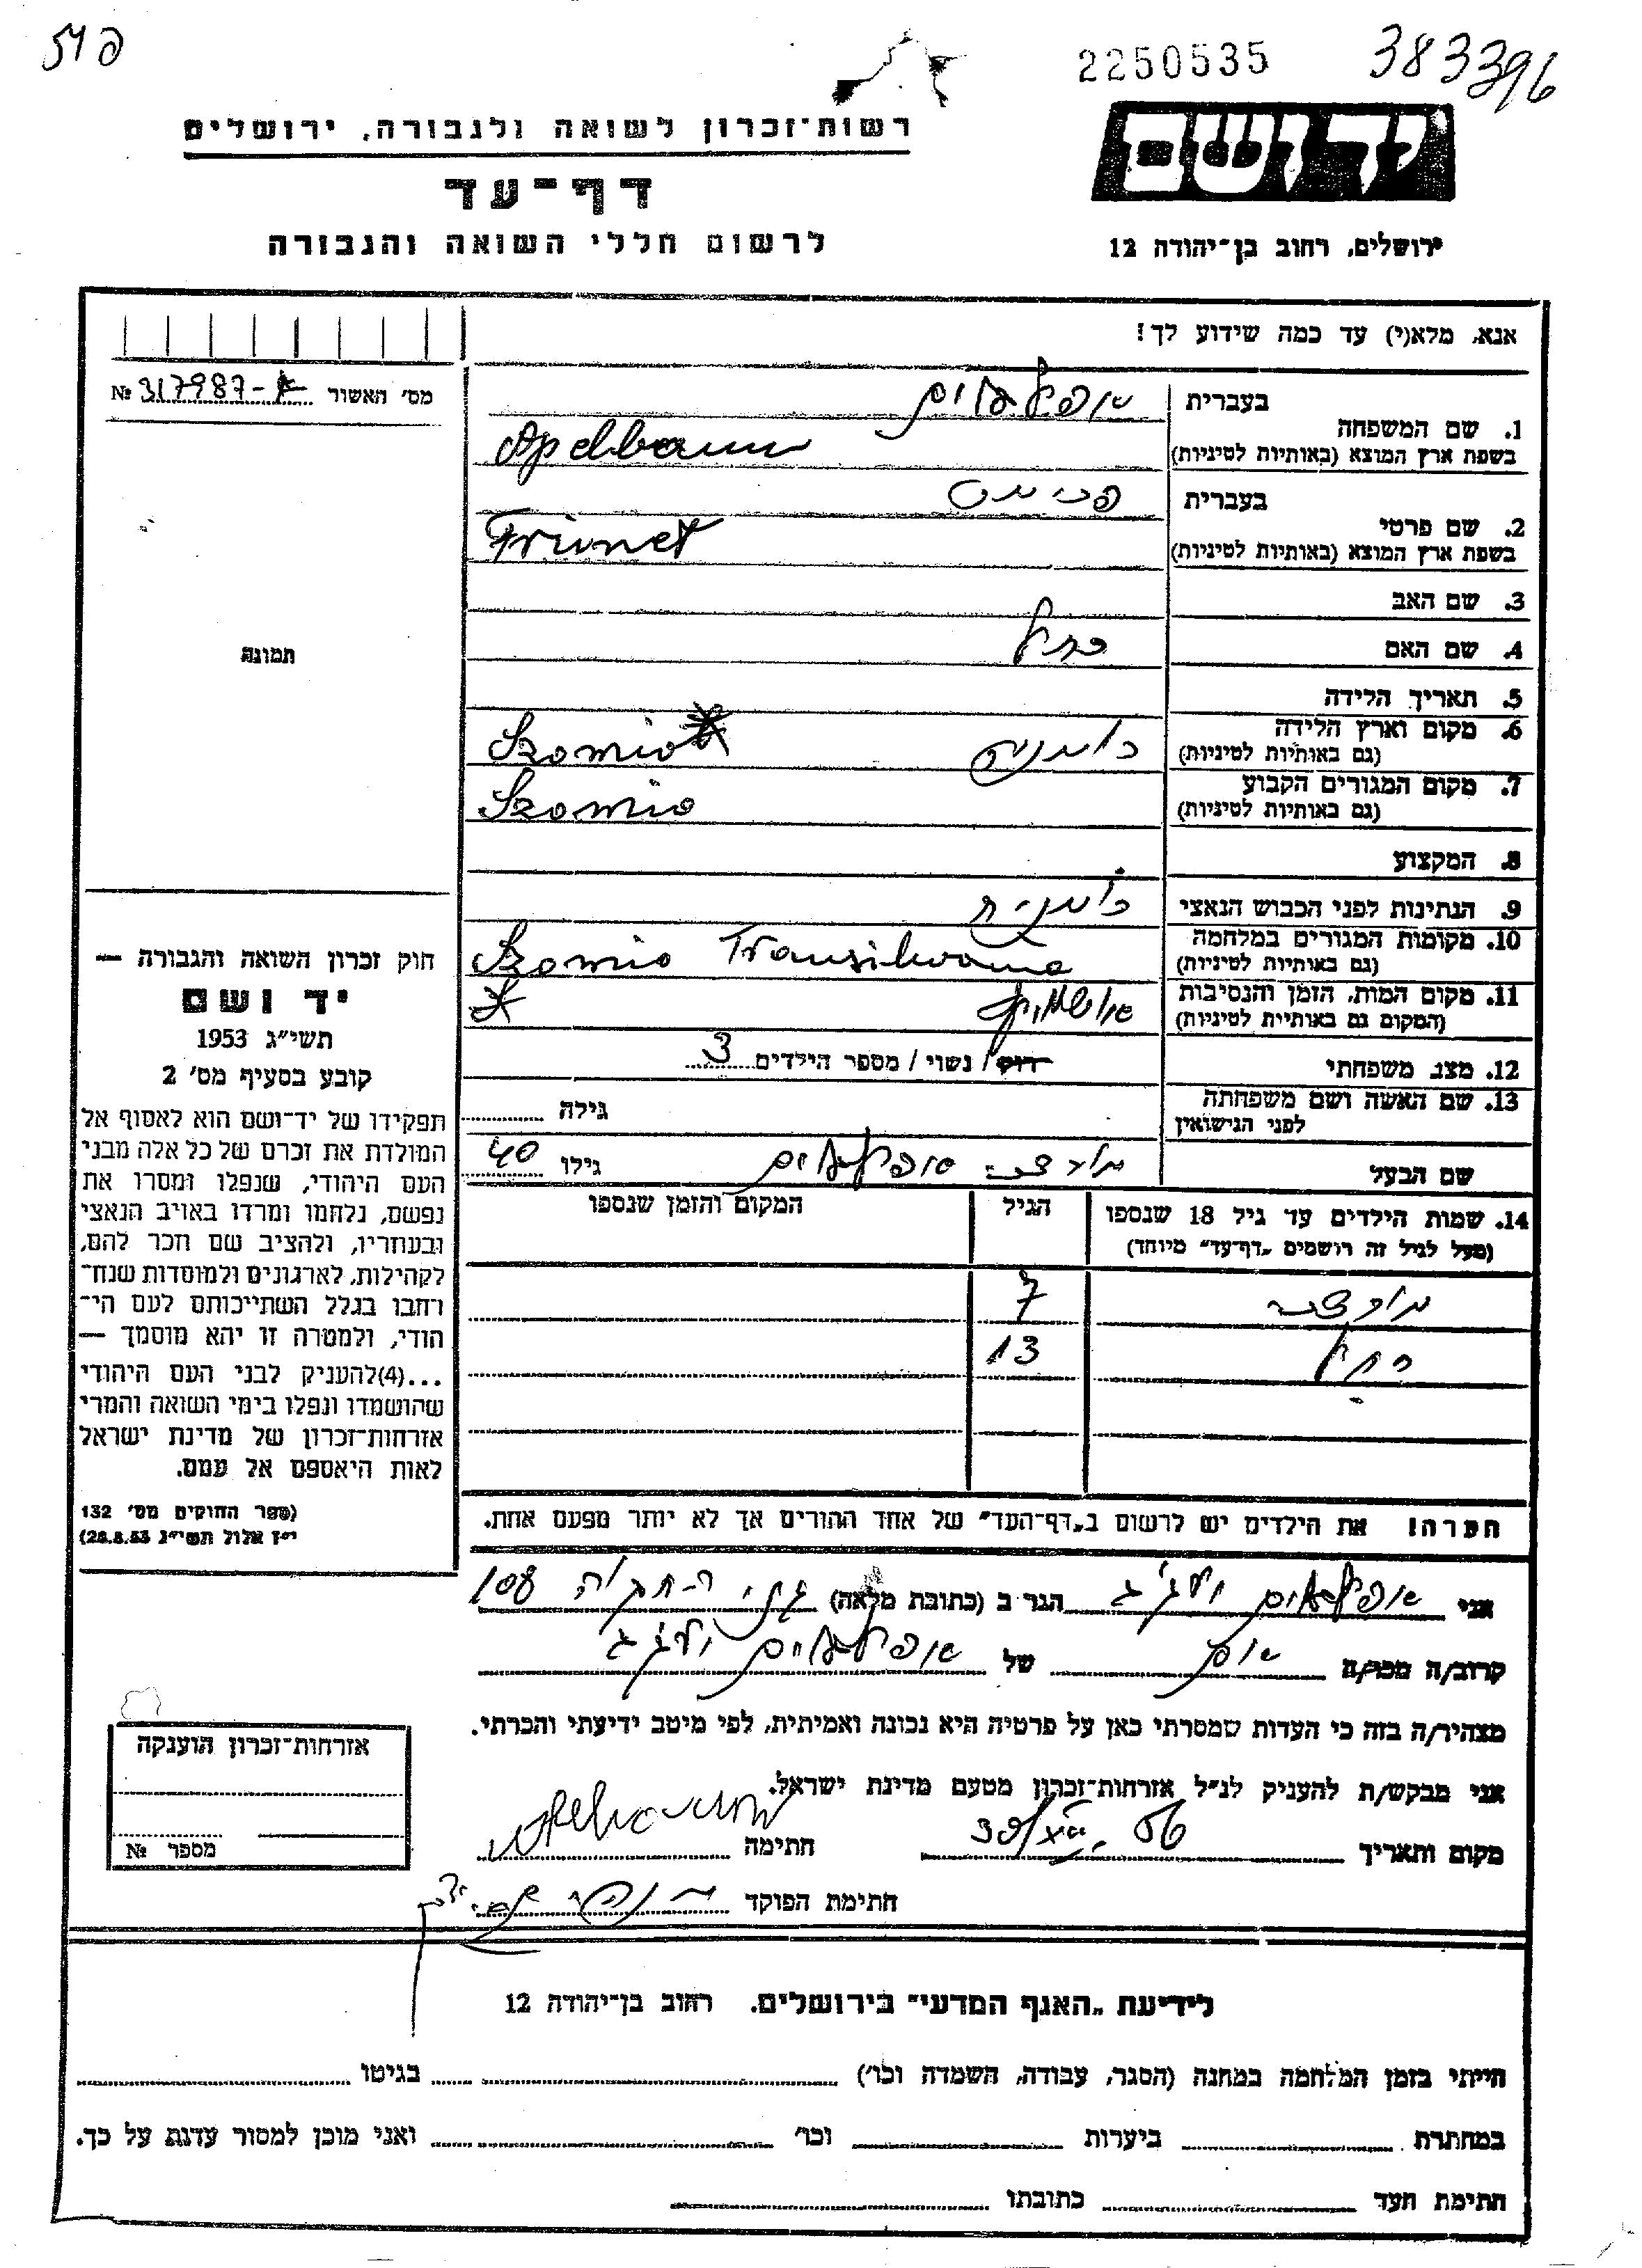 2250535 383396
רשות־זכרון לשואה ולגבורה, ירושלים
יד ושם
דף־עד
לרשום חללי השואה והגבורה
ירושלים, רחוב בן־יהודה 12
אנא, מלא(י) עד כמה שידוע לך!
מס׳ האשור 317987 №
בעברית אפלבוים
1. שם המשפחה
בשפת ארץ המוצא (באותיות לטיניות) Apelbaum
בעברית פרימט
2. שם פרטי
בשפת ארץ המוצא (באותיות לטיניות) Frimet
3. שם האב
4. שם האם
תמונה
5. תאריך הלידה
6. מקום וארץ הלידה
(גם באותיות לטיניות) רומניה Szomio
7. מקום המגורים הקבוע
(גם באותיות לטיניות) Szomio
8. המקצוע
9. הנתינות לפני הכבוש הנאצי רומנית
10. מקומות המגורים במלחמה
(גם באותיות לטיניות) Szomio Transilwania
11. מקום המות, הזמן והנסיבות
(המקום גם באותיות לטיניות) אושוויץ
12. מצב משפחתי רווק / נשוי / מספר הילדים 3
13. שם האשה ושם משפחתה
לפני הנישואין גילה
שם הבעל אפלבוים גילו 40
14. שמות הילדים עד גיל 18 שנספו הגיל המקום והזמן שנספו
(מעל לגיל זה רושמים „דף־עד״ מיוחד)
7
רחל 13
הערה! את הילדים יש לרשום ב„דף־העד״ של אחד ההורים אך לא יותר מפעם אחת.
חוק זכרון השואה והגבורה —
יד ושם
תשי״ג 1953
קובע בסעיף מס׳ 2
תפקידו של יד־ושם הוא לאסוף אל
המולדת את זכרם של כל אלה מבני
העם היהודי, שנפלו ומסרו את
נפשם, נלחמו ומרדו באויב הנאצי
ובעוזריו, ולהציב שם וזכר להם,
לקהילות, לארגונים ולמוסדות שנח־
רחבו בגלל השתייכותם לעם הי־
הודי, ולמטרה זו יהא מוסמך —
...(4)להעניק לבני העם היהודי
שהושמדו ונפלו בימי השואה והמרי
אזרחות־זכרון של מדינת ישראל
לאות היאספם אל עמם.
(ספר החוקים מס׳ 132
י״ז אלול תשי״ג 28.8.53)
אני אפלבוים הגר ב (כתובת מלאה) 108
קרוב/ה מכר/ה של אפלבוים
מצהיר/ה בזה כי העדות שמסרתי כאן על פרטיה היא נכונה ואמיתית, לפי מיטב ידיעתי והכרתי.
אני מבקש/ת להעניק לנ״ל אזרחות־זכרון מטעם מדינת ישראל.
מקום ותאריך חתימה
חתימת הפוקד
אזרחות־זכרון הוענקה
מספר №
לידיעת „האגף המדעי״ בירושלים. רחוב בן־יהודה 12
הייתי בזמן המלחמה במחנה (הסגר, עבודה, השמדה וכו׳) בגיטו
במחתרת ביערות וכו׳ ואני מוכן למסור עדות על כך.
חתימת העד כתובתו